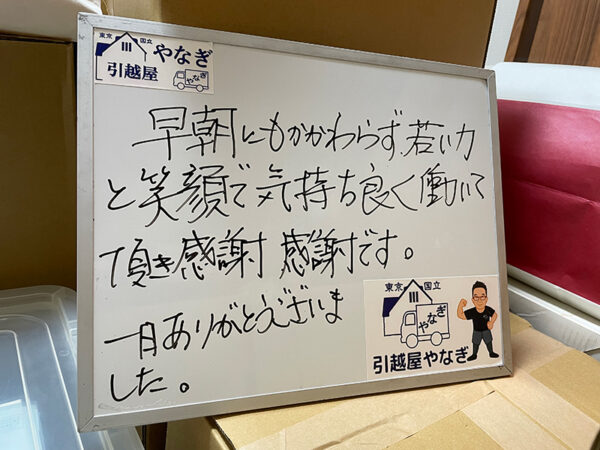 東京 国立
やなぎ
引越屋
やなぎ
早朝にもかかわらず若い力
と笑顔で気持ち良く働いて
頂き感謝 感謝です。
一日ありがとうございま
した。
東京 国立
やなぎ
引越屋やなぎ